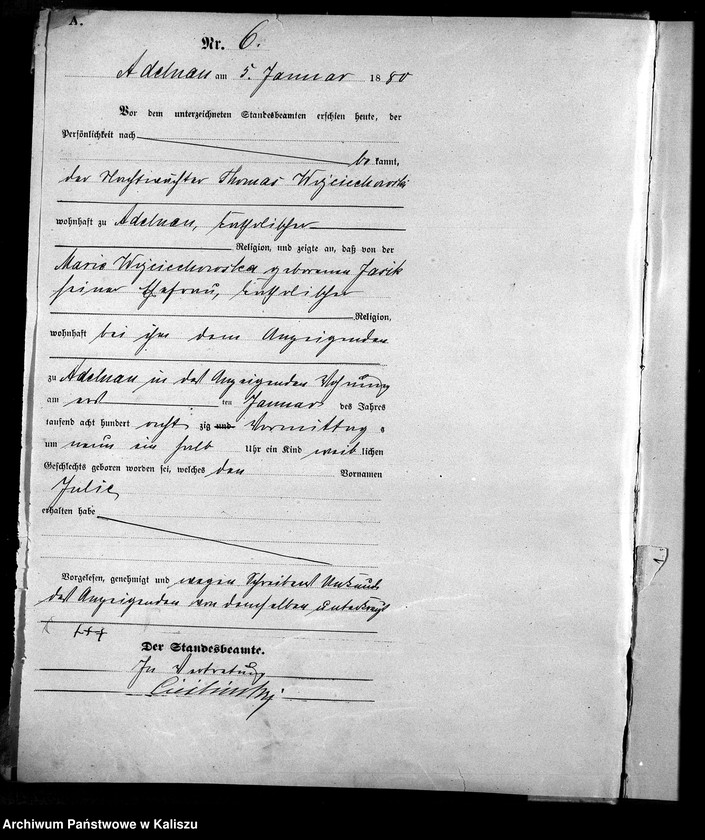 A.
Nr. 6.
Adelnau am 5. Januar 1880
Vor dem unterzeichneten Standesbeamten erschien heute, der
Persönlichkeit nach
be kannt,
der Nachtwächter Thomas Wojciechowski
wohnhaft zu Adelnau, katholischer
Religion, und zeigte an, daß von der
Marie Wojciechowska geborenen Jasik
seiner Ehefrau, katholischer
Religion,
wohnhaft bei ihm dem Anzeigenden
zu Adelnau in des Anzeigenden Wohnung
am erst ten Januar des Jahres
tausend acht hundert acht zig und Vormittag s
um neun ein halb Uhr ein Kind weib lichen
Geschlechts geboren worden sei, welches den Vornamen
Julie
erhalten habe
Vorgelesen, genehmigt und wegen Schreibens Unkunde
des Anzeigenden von demselben unterkreuzt
+++
Der Standesbeamte.
In Vertretung
1.
Archiwum Państwowe w Kaliszu